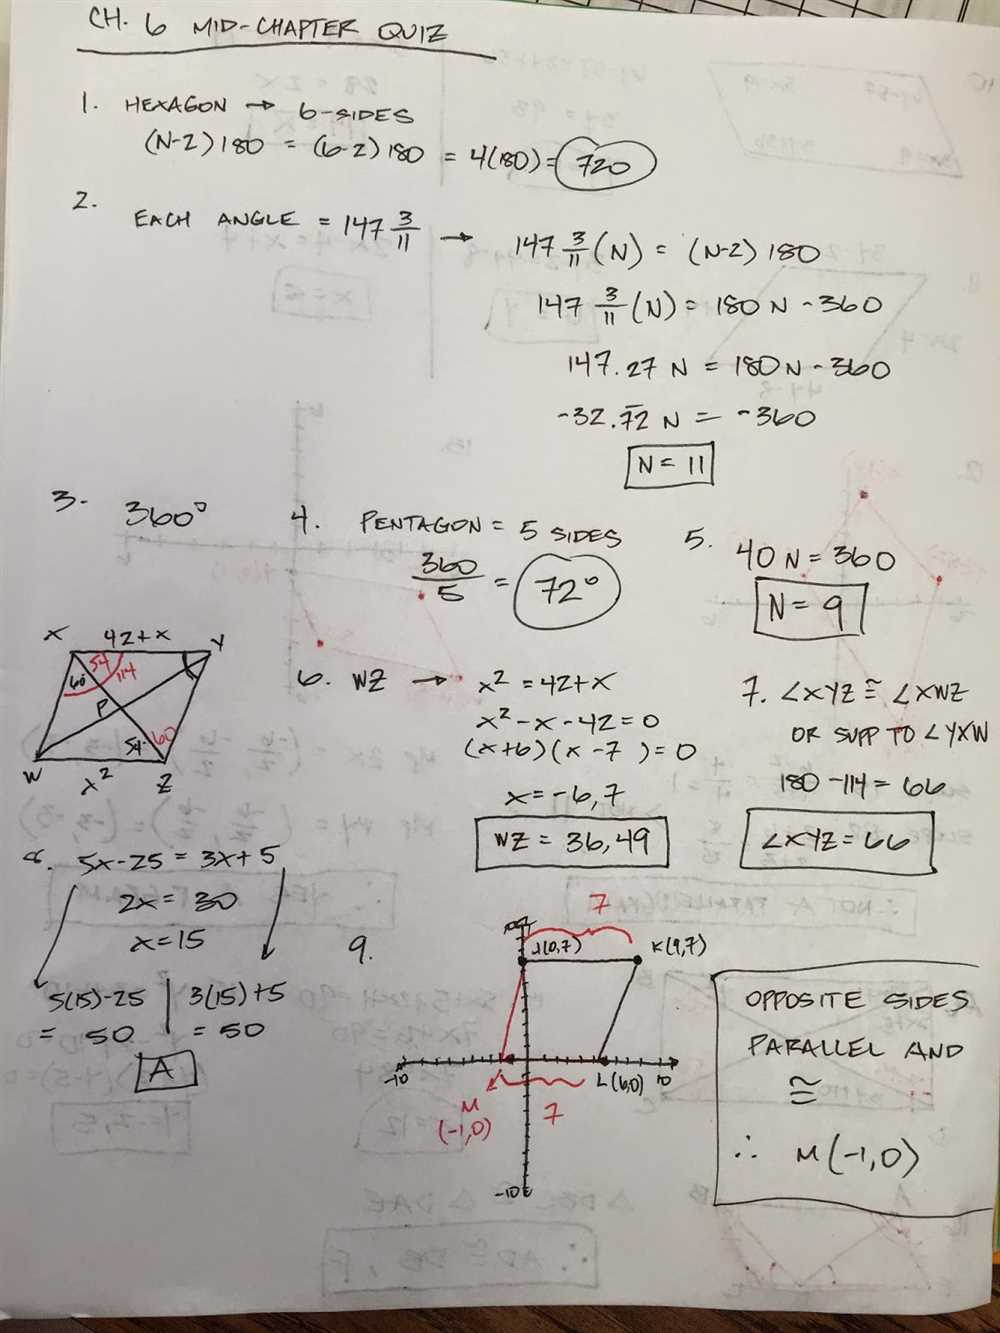 CH. 6 MID-CHAPTER QUIZ
1. HEXAGON → 6-SIDES
(N-2)180 = (6-2)180 = 4(180) = 720
2. EACH ANGLE = 147 3/11 → 147 3/11 (N) = (N-2)180
147 3/11 (N) = 180N - 360
147.27 N = 180N - 360
-32.7̅2̅ N = -360
N = 11
3. 360°
4. PENTAGON = 5 SIDES
360/5 = 72°
5. 40N = 360
N = 9
X 42+X Y
54
60 114
P
54 60
W X² Z
6. WZ → X² = 42+X
X² - X - 42 = 0
(X+6)(X-7) = 0
X = -6, 7
WZ = 36, 49
7. ∠XYZ ≅ ∠XWZ
OR SUPP TO ∠YXW
180 - 114 = 66
∠XYZ = 66
8. 5X-25 = 3X+5
2X = 30
X = 15
5(15)-25 | 3(15)+5
= 50 | = 50
A
9.
7
J(0,7) K(9,7)
-10 L(6,0) 10
M
(-1,0)
7
-10
OPPOSITE SIDES
PARALLEL AND
≅
∴ M(-1,0)